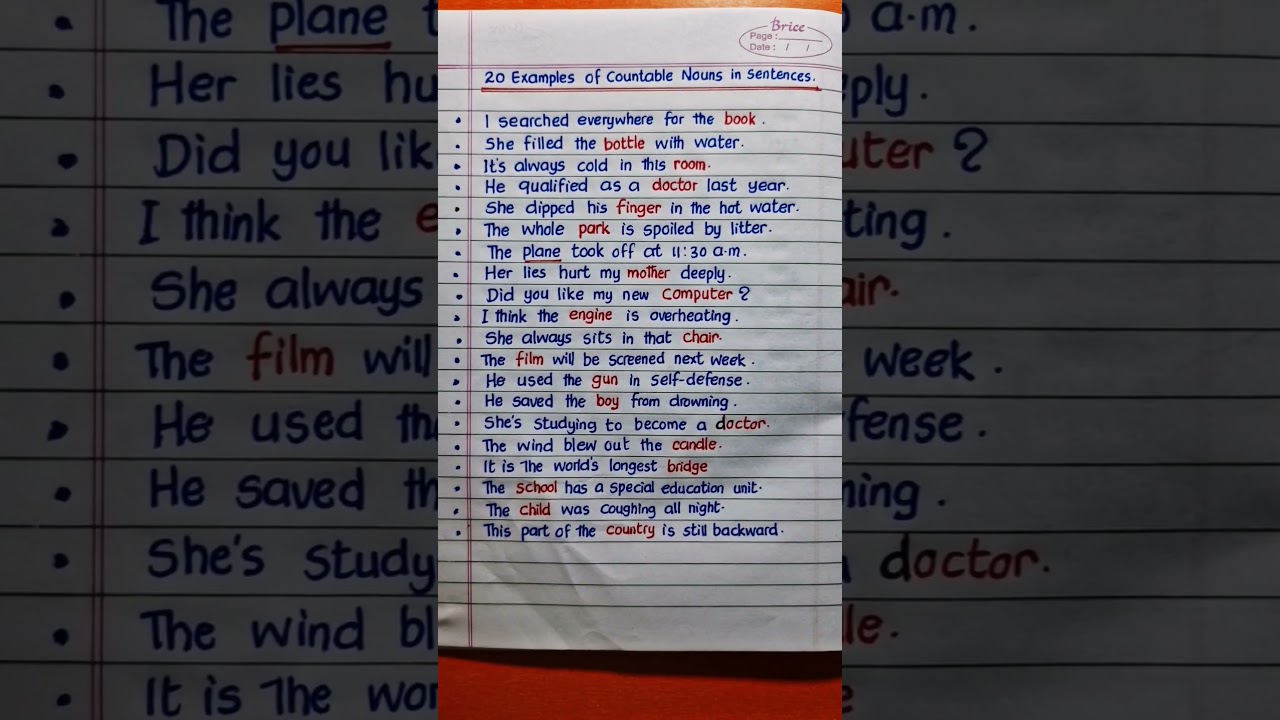 Brice
Page :
Date : / /
20 Examples of Countable Nouns in Sentences.
• I searched everywhere for the book.
• She filled the bottle with water.
• It's always cold in this room.
• He qualified as a doctor last year.
• She dipped his finger in the hot water.
• The whole park is spoiled by litter.
• The plane took off at 11:30 a.m.
• Her lies hurt my mother deeply.
• Did you like my new Computer?
• I think the engine is overheating.
• She always sits in that chair.
• The film will be screened next week.
• He used the gun in self-defense.
• He saved the boy from drowning.
• She's studying to become a doctor.
• The wind blew out the candle.
• It is The world's longest bridge
• The school has a special education unit.
• The child was coughing all night.
• This part of the country is still backward.